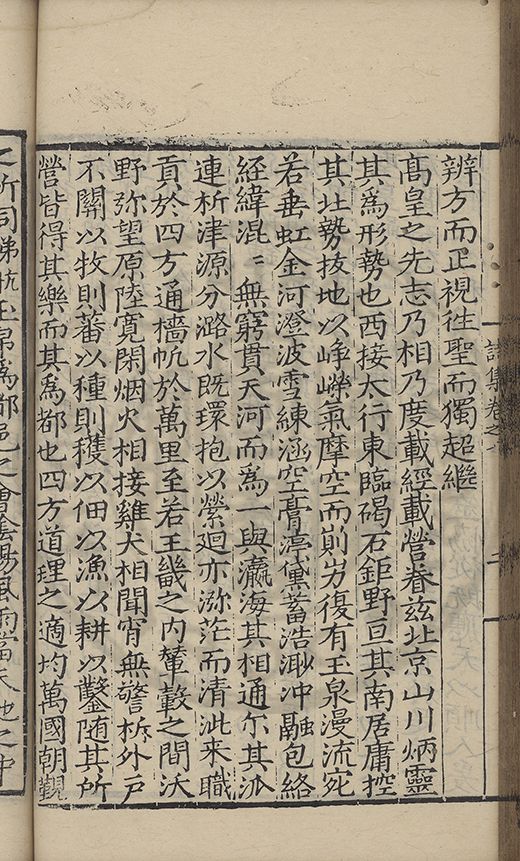 詩集卷之
二
辨方而正視徃聖而獨超繼
高皇之先志乃相乃度載經載營眷兹北京山川炳靈
其為形勢也西接太行東臨碣石鉅野亘其南居庸控
其北勢拔地以崢嶸氣摩空而崱屴復有玉泉漫流宛
若垂虹金河澄波雪練涵空膏渟黛蓄浩渺冲融包絡
經緯混〻無窮貫天河而為一與瀛海其相通尔其派
連析津源分潞水既環抱以縈廻亦瀰茫而清泚来職
貢於四方通檣帆於萬里至若王畿之内輦轂之間沃
野弥望原陸寛閑烟火相接雞犬相聞宵無警柝外户
不關以牧則蕃以種則穫以佃以漁以耕以鑿随其所
營皆得其樂而其為都也四方道理之適均萬國朝覲
之所同玉帛為都邑之會陰陽風雨當天地之中